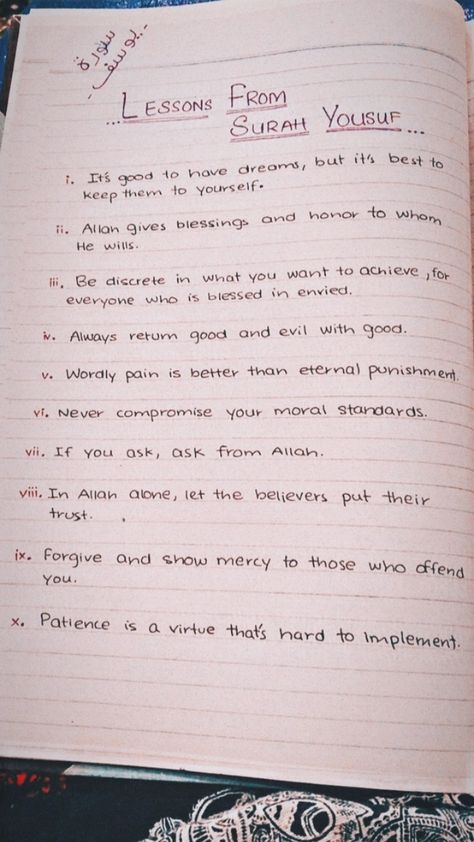 سورة
- يوسف -
...LESSONS FROM
SURAH YOUSUF...
i. It's good to have dreams, but it's best to
keep them to yourself.
ii. Allah gives blessings and honor to whom
He wills.
iii. Be discrete in what you want to achieve, for
everyone who is blessed in envied.
iv. Always return good and evil with good.
v. Wordly pain is better than eternal punishment.
vi. Never compromise your moral standards.
vii. If you ask, ask from Allah.
viii. In Allah alone, let the believers put their
trust.
ix. Forgive and show mercy to those who offend
you.
x. Patience is a virtue that's hard to implement.